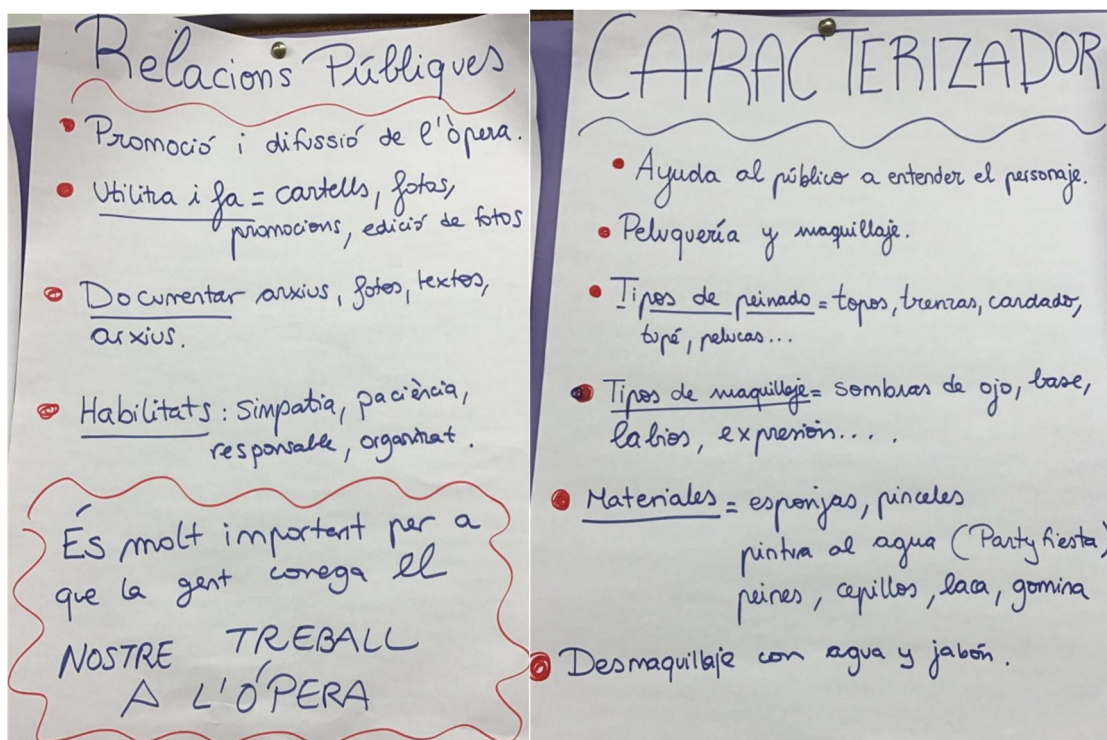 Relacions Públiques
Promoció i difussió de l'òpera.
Utilitza i fa = cartells, fotos,
promocions, edició de fotos
Documentar arxius, fotos, textos,
arxius.
Habilitats: simpatia, paciència,
responsable, organitzat.
És molt important per a
que la gent conega el
NOSTRE TREBALL
A L'ÓPERA
CARACTERIZADOR
Ayuda al público a entender el personaje.
Peluquería y maquillaje.
Tipos de peinado = topos, trenzas, cardado,
tupé, pelucas...
Tipos de maquillaje = sombras de ojo, base,
labios, expresión....
Materiales = esponjas, pinceles
pintura al agua (Party fiesta)
peines, cepillos, laca, gomina
Desmaquillaje con agua y jabón.